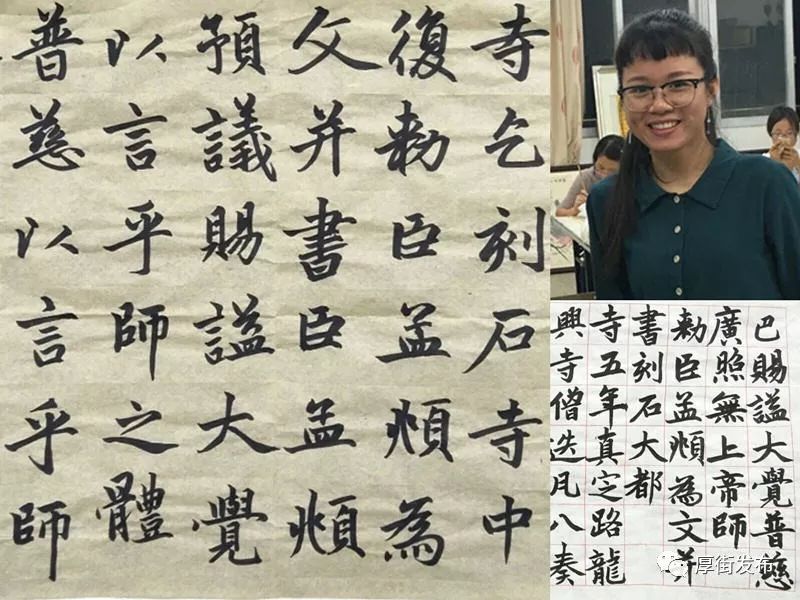 寺乞刻石寺中
復勅臣孟頫為
文并書臣孟頫
預議賜謚大覺
以言乎師之體
普慈以言乎師
巴賜謚大覺普慈
廣照無上帝師
勅臣孟頫為文并
書刻石大都
寺五年真定路龍
興寺僧迭凡八奏
厚街发布